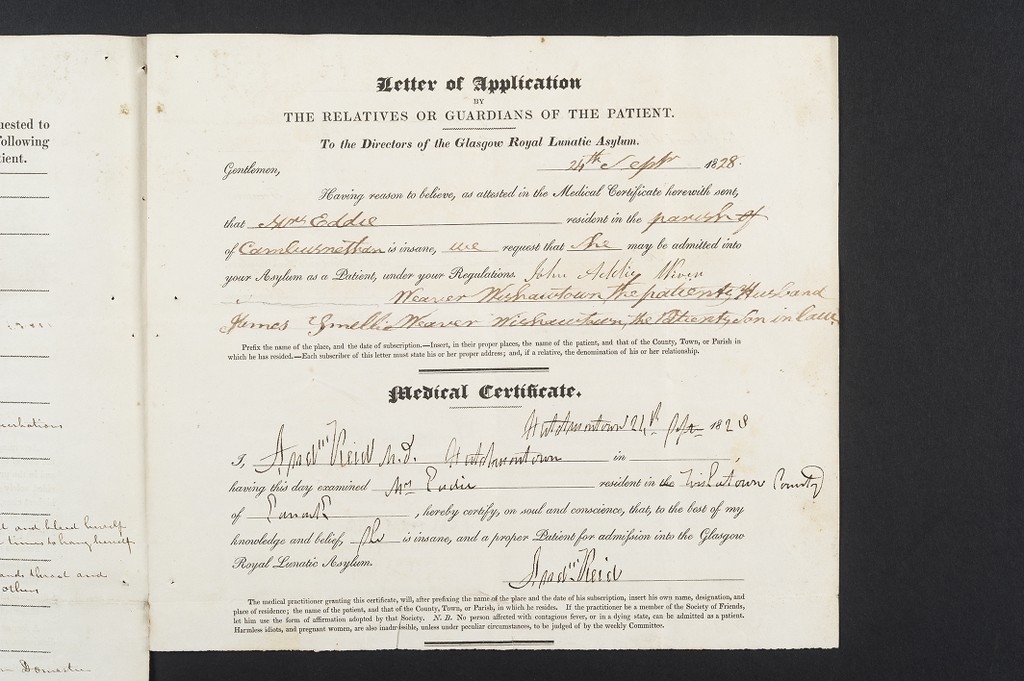 uested to
following
tient.
t and bleed herself
times to hang herself
ands threat and
others
Domestic
Letter of Application
BY
THE RELATIVES OR GUARDIANS OF THE PATIENT.
To the Directors of the Glasgow Royal Lunatic Asylum.
24th Sepr 1828.
Gentlemen,
Having reason to believe, as attested in the Medical Certificate herewith sent,
that Mrs Eddie resident in the parish of
of Cambusnethan is insane, we request that She may be admitted into
your Asylum as a Patient, under your Regulations. John Addie
Weaver Wishawtown the patients Husband
James Smellie Weaver Wishawtown, the Patients Son in law
Prefix the name of the place, and the date of subscription.—Insert, in their proper places, the name of the patient, and that of the County, Town, or Parish in
which he has resided.—Each subscriber of this letter must state his or her proper address; and, if a relative, the denomination of his or her relationship.
Medical Certificate.
Hutchesontown 24th Sepr 1828
I, Andw Reid M.D. Hutchesontown in ,
having this day examined Mrs Eddie resident in the Wishatown County
of Lanark , hereby certify, on soul and conscience, that, to the best of my
knowledge and belief, She is insane, and a proper Patient for admission into the Glasgow
Royal Lunatic Asylum.
Andw Reid
The medical practitioner granting this certificate, will, after prefixing the name of the place and the date of his subscription, insert his own name, designation, and
place of residence; the name of the patient, and that of the County, Town, or Parish, in which he resides. If the practitioner be a member of the Society of Friends,
let him use the form of affirmation adopted by that Society. N. B. No person affected with contagious fever, or in a dying state, can be admitted as a patient.
Harmless idiots, and pregnant women, are also inadmissible, unless under peculiar circumstances, to be judged of by the weekly Committee.